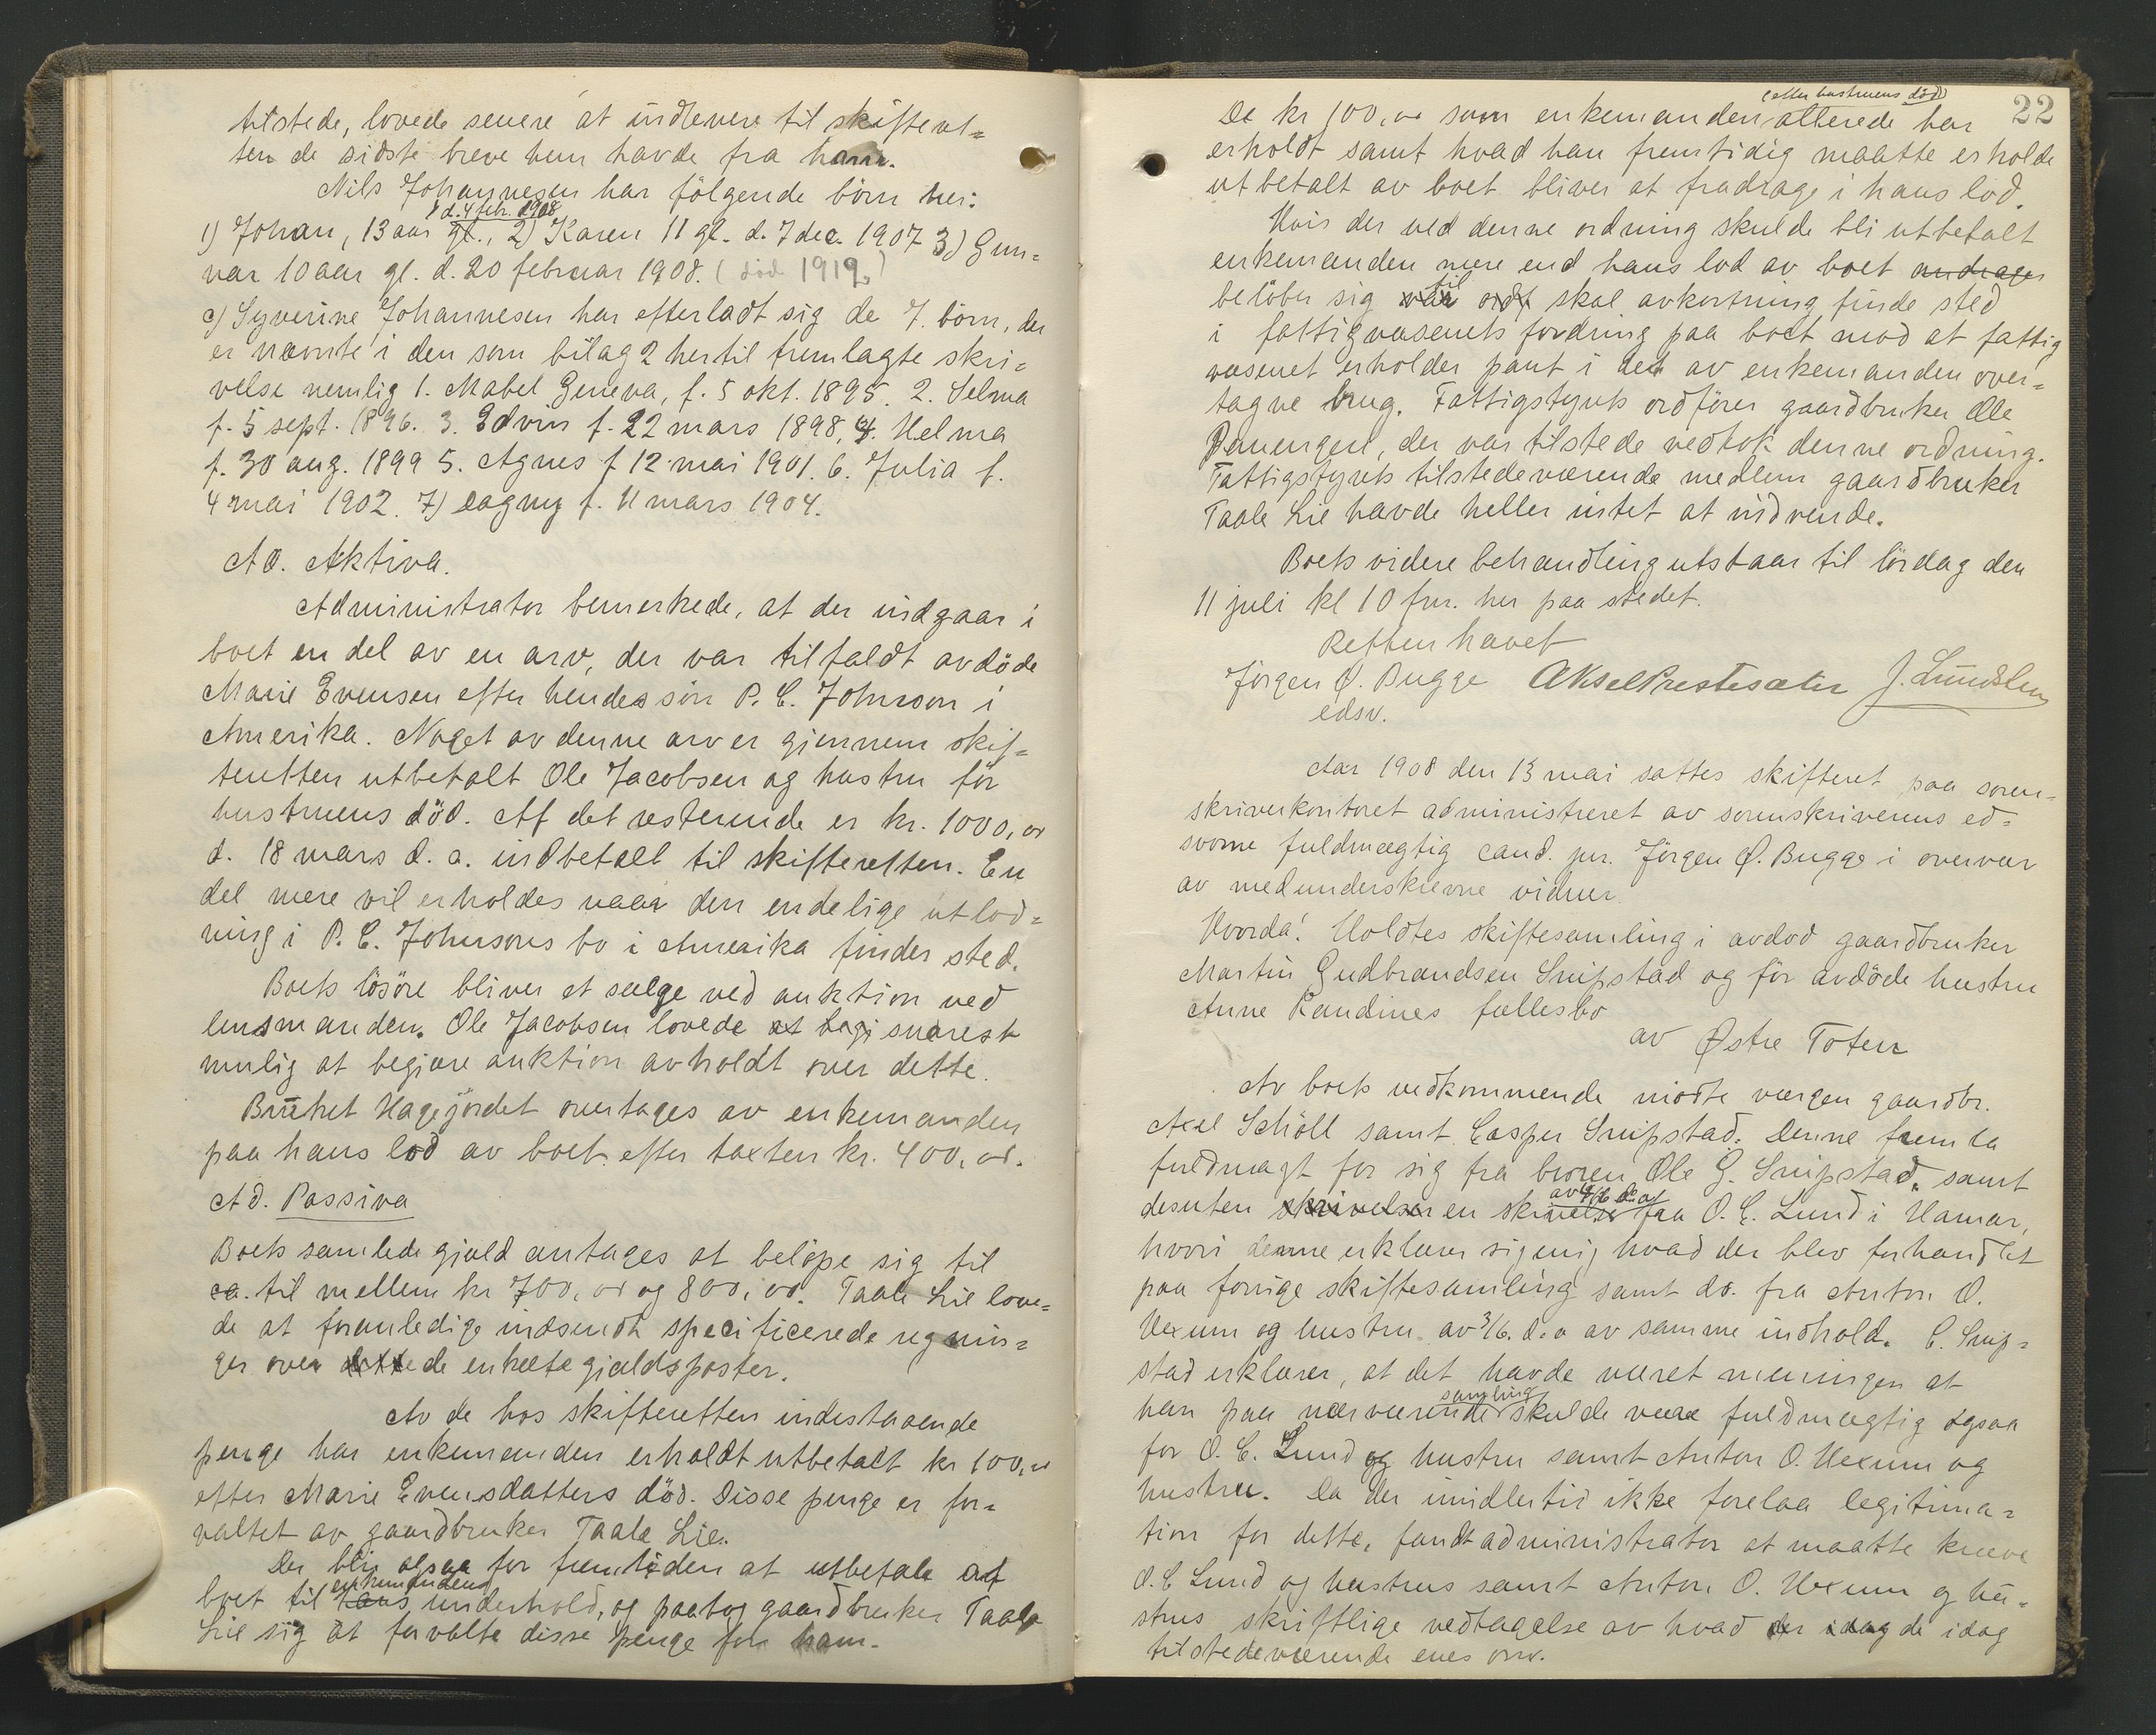 tilstede, lovede senere at indlevere til skifteret=
ten de sidste breve hun havde fra ham.
Nils Johannesen har följende börn her:
d. 4 febr. 1908
1) Johan, 13 aar gl., 2) Karen 11 gl. d. 7 dec. 1907 3) Gun=
var 10 aar gl. d. 20 februar 1908. (död 1919.)
c) Syverine Johannesen har efterladt sig de 7 börn, der
er nævnte i den som bilag 2 hertil fremlagte skri=
velse nemlig 1. Mabel Geneva, f. 5 okt. 1895. 2. Selma
f. 5 sept. 1896. 3. Edvin f. 22 mars 1898, 4. Helma
f. 30 aug. 1899 5. Agnes f 12 mai 1901. 6. Julia f.
4 mai 1902. 7) Dagny f. 11 mars 1904.
Ad. Aktiva.
Administrator bemerkede, at der indgaar i
boet en del av en arv, der var tilfaldt avdöde
Marie Evensen efter hendes sön P. C. Johnson i
Amerika. Noget av denne arv er gjennem skif=
teretten utbetalt Ole Jacobsen og hustru för
hustruens död. Af det resterende er kr. 1000,00
d. 18 mars d. a. indbetalt til skifteretten. En
del mere vil erholdes naar den endelige utlod=
ning i P. C. Johnsons bo i Amerika finder sted.
Boets lösöre bliver at sælge ved auktion ved
lensmanden. Ole Jacobsen lovede at begj snarest
mulig at begjære auktion avholdt over dette.
Bruket Hagejordet overtages av enkemanden
paa hans lod av boet efter taxten kr. 400,00.
Ad. Passiva
Boets samlede gjæld antages at belöpe sig til
ca. til mellem kr 700,00 og 800,00. Taale Lie love=
de at foranledige indsendt specificerede regnin=
ger over dette de enkelte gjældsposter.
Av de hos skifteretten indestaaende
penge har enkemanden erholdt utbetalt kr 100,00
efter Marie Evensdatters död. Disse penge er for=
valtet av gaardbruker Taale Lie.
Der blir ogsaa for fremtiden at utbetale af
enkemandens
boet til hans underhold, og paatog gaardbruker Taale
Lie sig at forvalte disse penge for ham.
22
(efter hustruens död)
De kr 100,00 som enkemanden allerede har
erholdt samt hvad han fremtidig maatte erholde
utbetalt av boet bliver at fradrage i hans lod.
Hvis der ved denne ordning skulde bli utbetalt
enkemanden mere end hans lod av boet andrager
til
belöber sig skal avkortning finde sted
i fattigvæsenets fordring paa boet mod at fattig
væsenet erholder pant i det av enkemanden over=
tagne brug. Fattigstyrets ordförer gaardbruker Ole
Dauengen, der var tilstede vedtok denne ordning.
Fattigstyrets tilstedeværende medlem gaardbruker
Taale Lie havde heller intet at indvende.
Boets videre behandling utstaar til lördag den
11 juli kl 10 fm. her paa stedet.
Retten hævet
Jörgen Ø. Bugge Aksel Prestesæter J. Lundsten
edsv.
Aar 1908 den 13 mai sattes skifteret paa soren=
skriverkontoret administreret av sorenskriverens ed=
svorne fuldmægtig cand. jur. Jörgen Ø. Bugge i overvær
av medunderskrevne vidner
Hvorda! Holdtes skiftesamling i avdöd gaardbruker
Martin Gudbrandsen Snipstad og för avdöde hustru
Anne Randines fællesbo
av Østre Toten
Av boets vedkommende mödte værgen gaardbr.
Axel Schöll samt Casper Snipstad. Denne fremla
fuldmagt for sig fra broren Ole G. Snipstad, samt
desuten skrivelsen en skrivelse fra O. C. Lund i Hamar,
hvori denne erklærer sig enig hvad der blev forhandlet
paa forrige skiftesamling samt do. fra Anton O.
Hexum og hustru av 3/6. d. a av samme indhold. C. Snip=
stad erklærer, at det havde været meningen at
samling
han paa nærværende skulde være fuldmægtig ogsaa
for O. C. Lund og hustru samt Anton O. Hexum og
hustru. Da der imidlertid ikke forelaa legitima=
tion for dette, fandt administrator at maatte kræve
O. C Lund og hustrus samt Anton O. Hexum og hu=
strus skriftlige vedtagelse av hvad der idag de idag
tilstedeværende enes om.